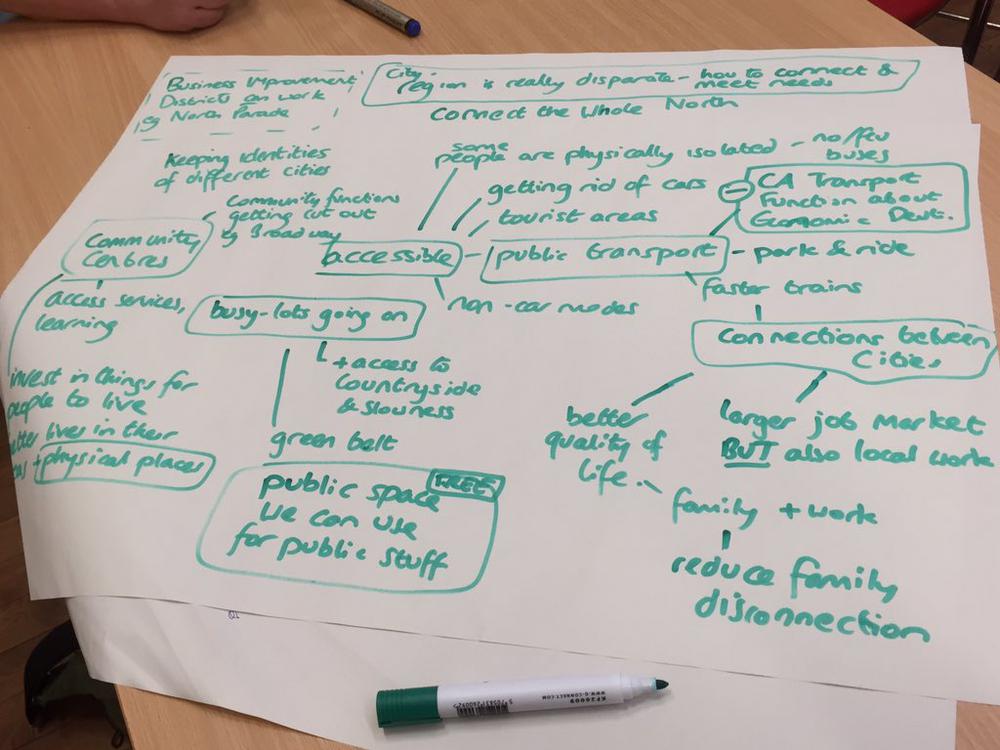 Business Improvement
Districts can work
eg North Parade
City
region is really disparate - how to connect &
meet needs
Connect the Whole North
Keeping identities
of different cities
some
people are physically isolated - no/few
buses
getting rid of cars
tourist areas
- CA Transport
Function about
Economic Devt.
Community functions
getting cut out
eg Broadway
Community
Centres
accessible - public transport - park & ride
access services,
learning
busy - lots going on
non-car modes
faster trains
connections between
Cities
+ access to
Countryside
& slowness
invest in things for
people to live
better lives in their
+ physical places
green belt
public space FREE
we can use
for public stuff
better
quality of
life
larger job market
BUT also local work
family + work
reduce family
disconnection
KF26009
WWW.Q-CONNECT.COM